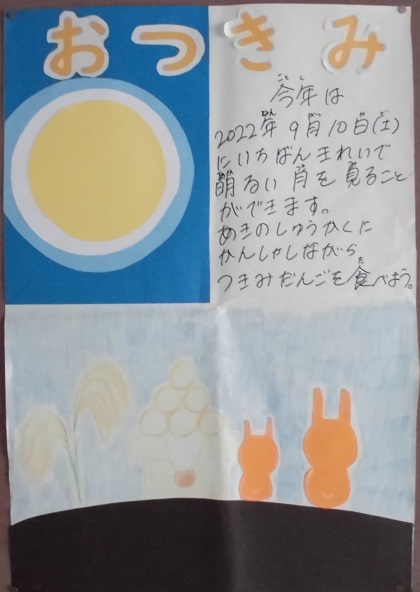 おつきみ
今年は
2022年9月10日(土)
にいちばんきれいで
明るい月を見ること
ができます。
あきのしゅうかくに
かんしゃしながら
つきみだんごを食べよう。